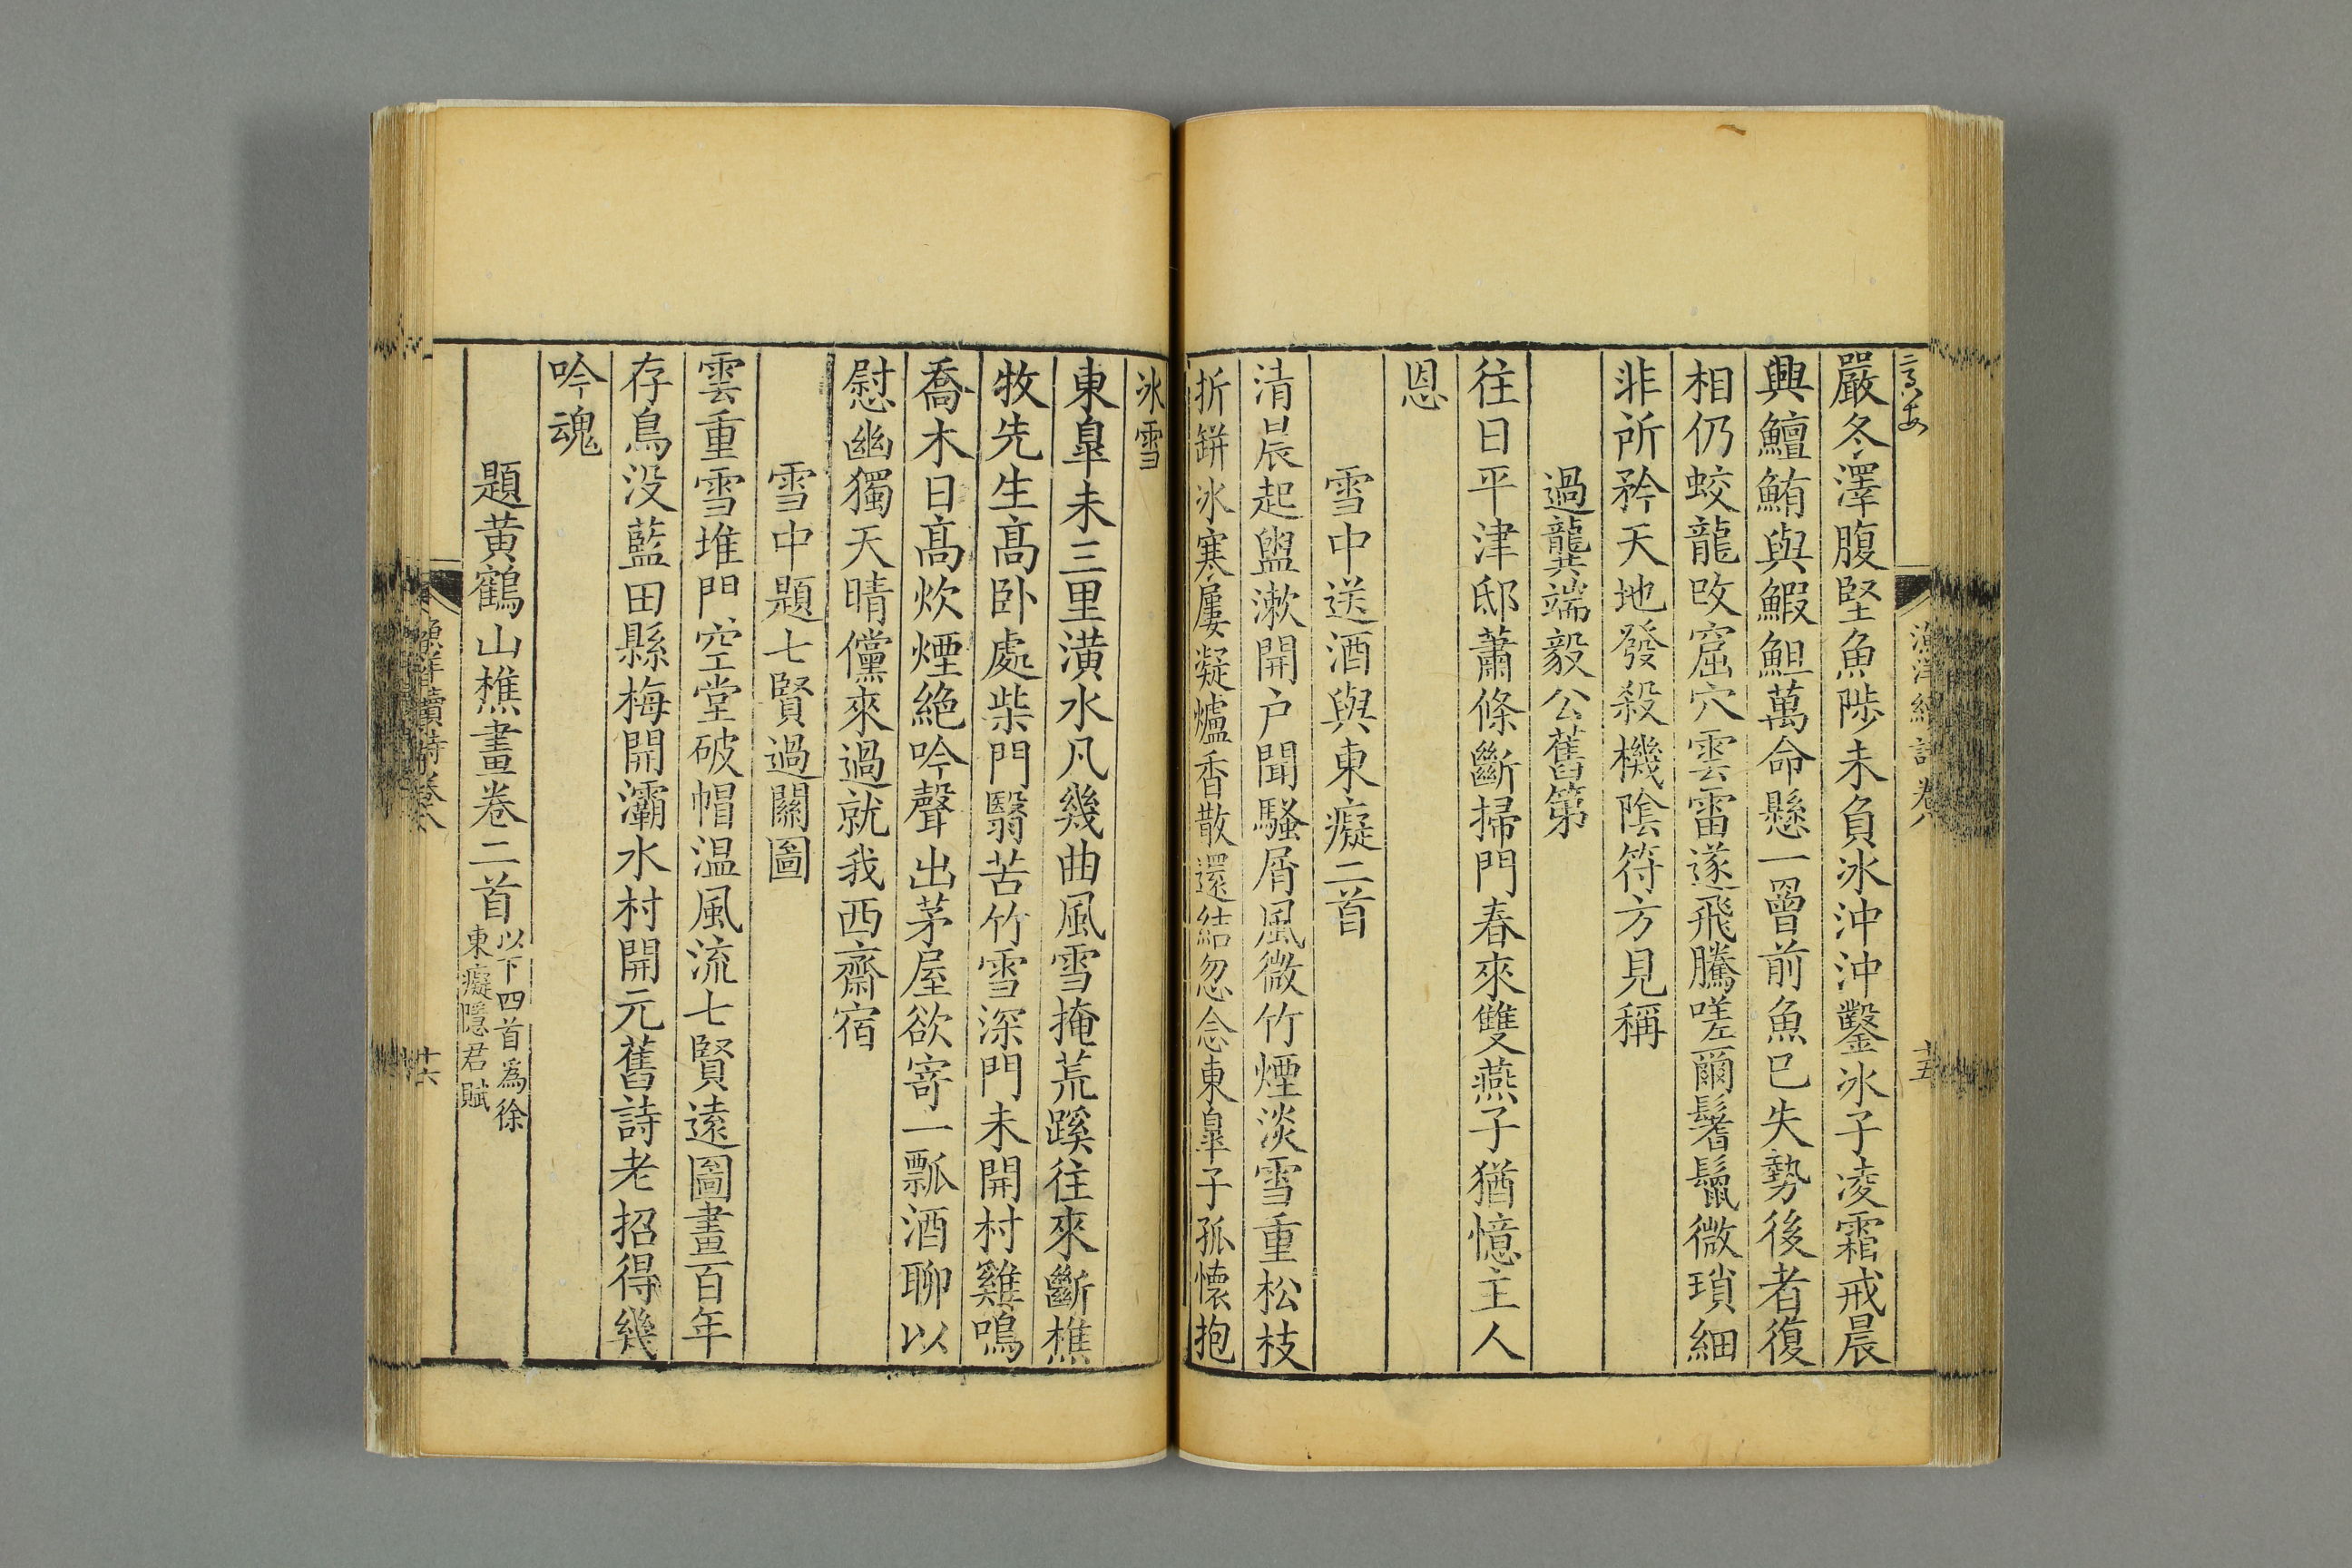 嚴冬澤腹堅魚陟未負冰沖沖鑿冰子凌霜戒晨
興鱣鮪與鰕䱇萬命懸一罾前魚已失勢後者復
相仍蛟龍改窟穴雲雷遂飛騰嗟爾鬐鬣微瑣細
非所矜天地發殺機陰符方見稱
過龔端毅公舊第
往日平津邸蕭條斷掃門春來雙燕子猶憶主人
恩
雪中送酒與東癡二首
清晨起盥漱開户聞騷屑風微竹煙淡雪重松枝
折缾冰寒屢凝爐香散還結忽念東皐子孤懷抱
冰雪
東皐未三里潢水凡幾曲風雪掩荒蹊往來斷樵
牧先生高卧處柴門翳苦竹雪深門未開村雞鳴
喬木日高炊煙絶吟聲出茅屋欲寄一瓢酒聊以
慰幽獨天晴儻來過就我西齋宿
雪中題七賢過關圖
雲重雪堆門空堂破帽温風流七賢遠圖畫百年
存鳥没藍田縣梅開灞水村開元舊詩老招得幾
吟魂
題黄鶴山樵畫卷二首
以下四首為徐
東癡隱君賦
漁洋續詩卷八
十六